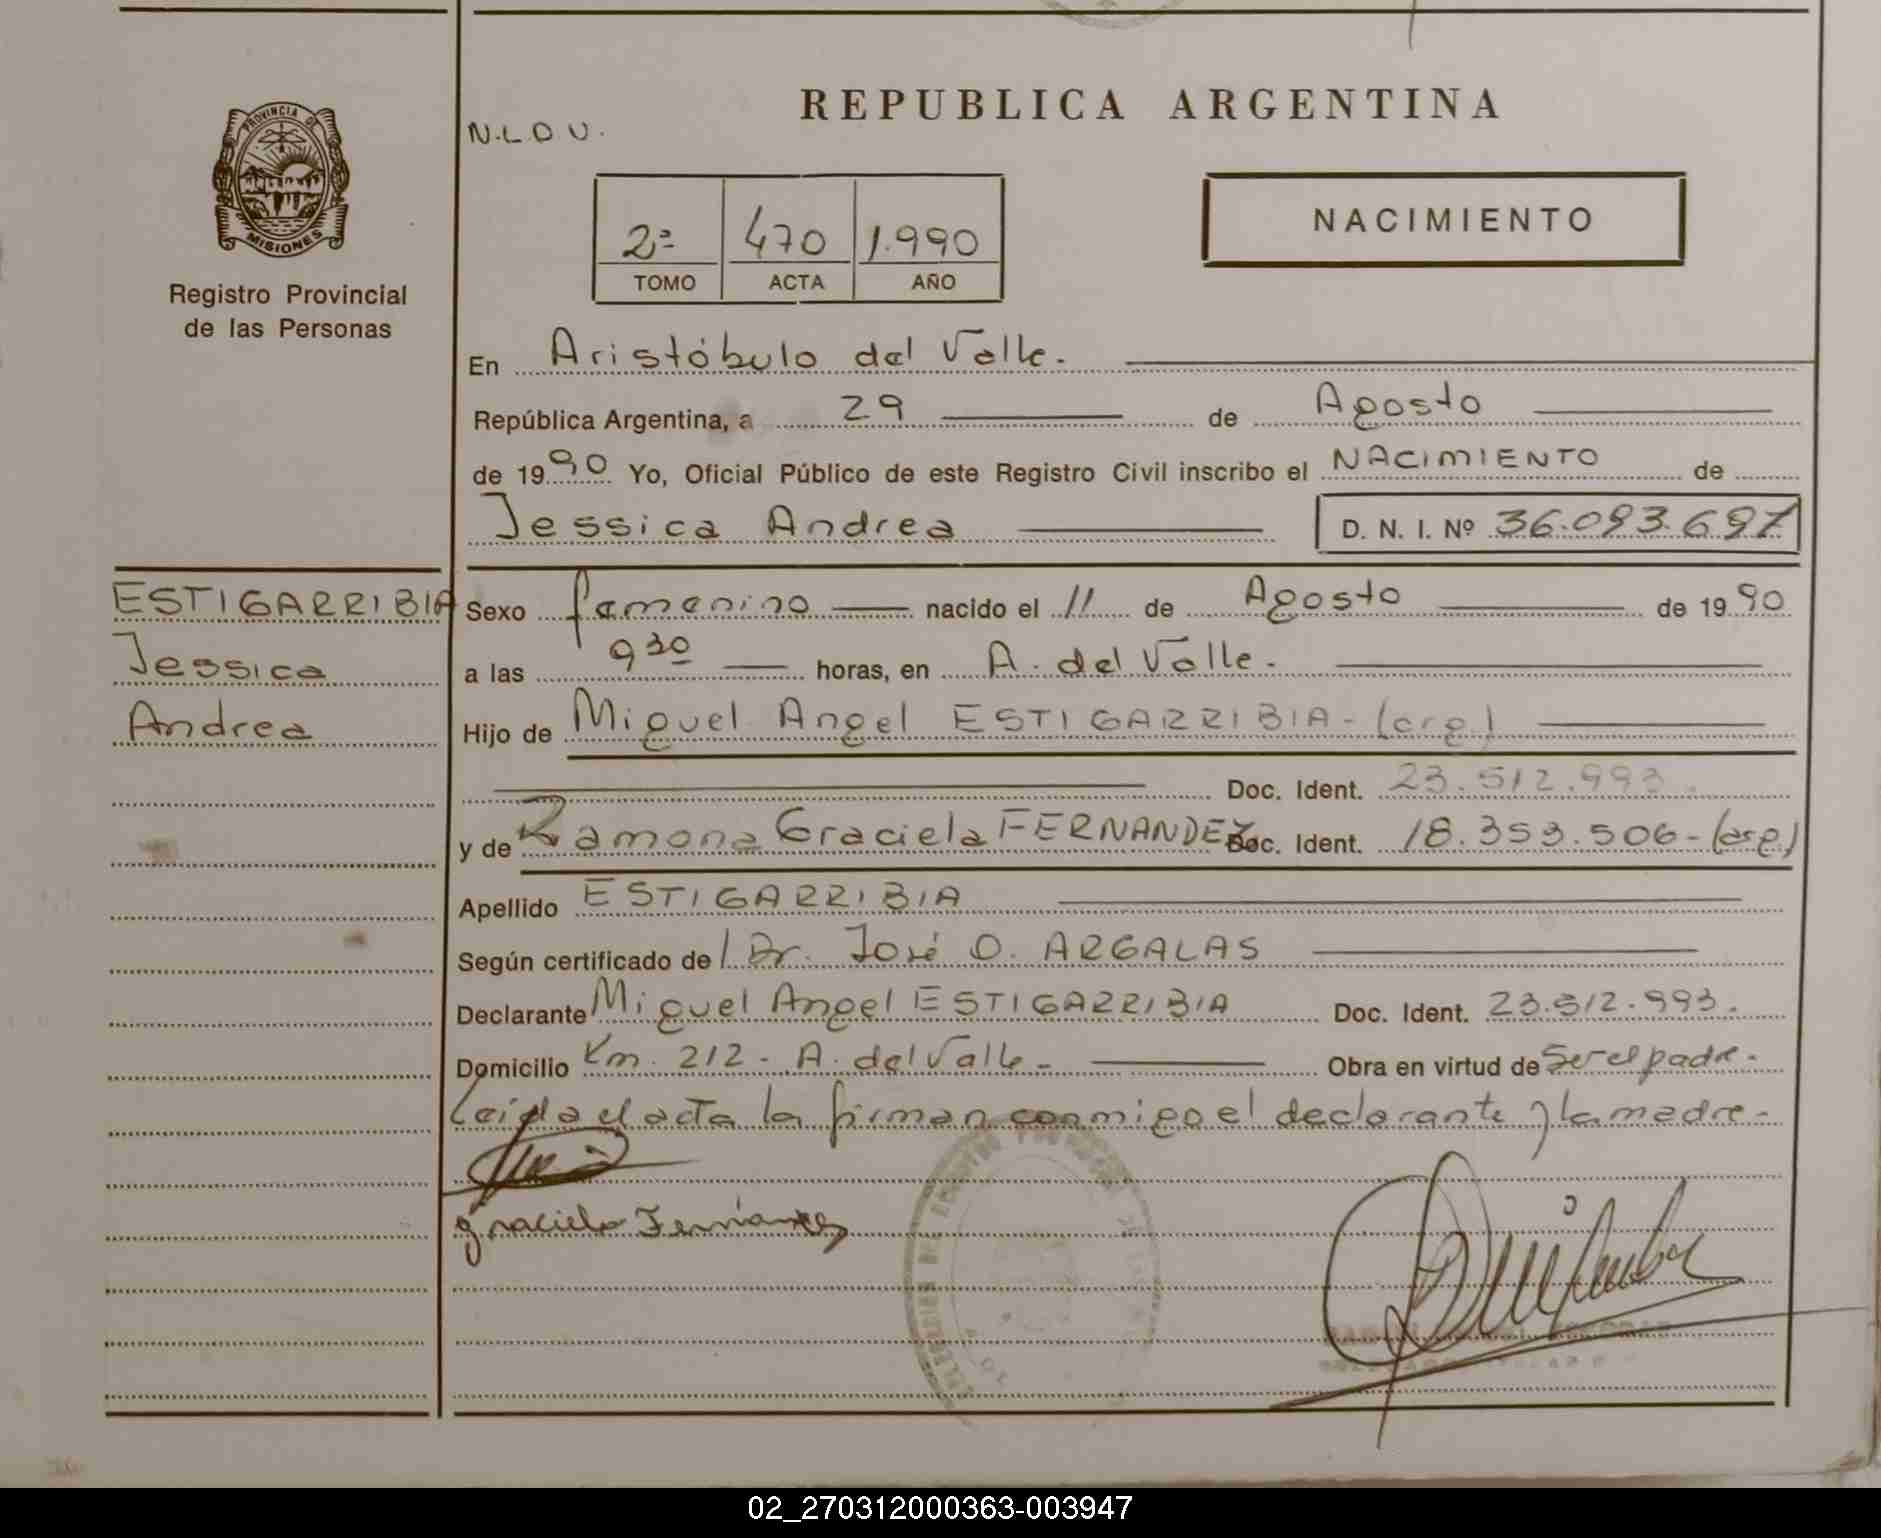 PROVINCIA DE
MISIONES
Registro Provincial
de las Personas
REPUBLICA ARGENTINA
N.L.O.V.
2ª 470 1.990
TOMO ACTA AÑO
NACIMIENTO
En Aristóbulo del Valle.
República Argentina, a 29 de Agosto
de 1990 Yo, Oficial Público de este Registro Civil inscribo el NACIMIENTO de
Jessica Andrea D. N. I. Nº 36.093.697
ESTIGARRIBIA
Jessica
Andrea
Sexo femenino nacido el 11 de Agosto de 1990
a las 9 30 horas, en A. del Valle.
Hijo de Miguel Angel ESTIGARRIBIA - (arg)
Doc. Ident. 23.512.993.
y de Ramona Graciela FERNANDEZ Doc. Ident. 18.353.506 - (arg)
Apellido ESTIGARRIBIA
Según certificado de l Dr. José O. ARGALAS
Declarante Miguel Angel ESTIGARRIBIA Doc. Ident. 23.512.993.
Domicilio Km. 212 - A. del Valle - Obra en virtud de Ser el padre.
Leida el acta la firman conmigo el declarante y la madre -
graciela Fernandez
02_270312000363-003947